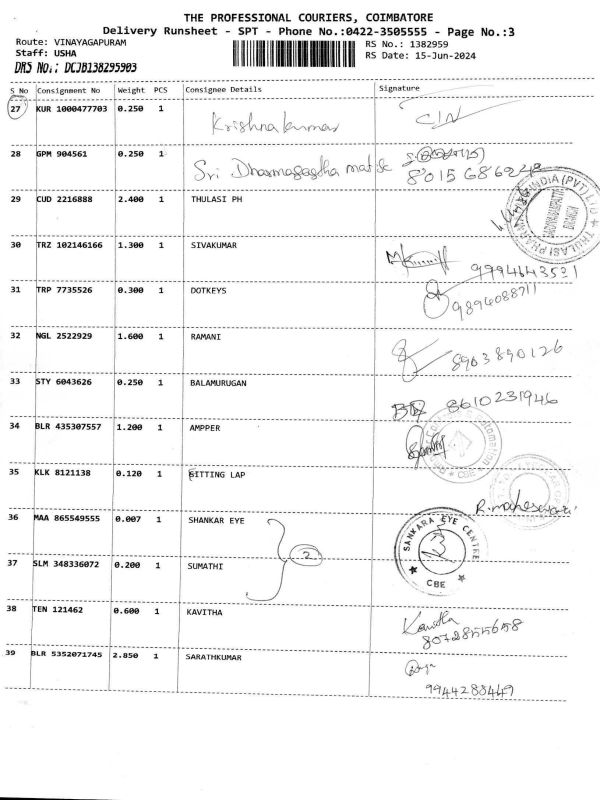 THE PROFESSIONAL COURIERS, COIMBATORE
Delivery Runsheet - SPT - Phone No.:0422-3505555 - Page No.:3
Route: VINAYAGAPURAM
Staff: USHA
DRS No.: DCJB138295903
RS No.: 1382959
RS Date: 15-Jun-2024
S No Consignment No Weight PCS Consignee Details Signature
27 KUR 1000477703 0.250 1 Krishnakumar
28 GPM 904561 0.250 1 Sri
29 CUD 2216888 2.400 1 THULASI PH
30 TRZ 102146166 1.300 1 SIVAKUMAR 9994643531
31 TRP 7735526 0.300 1 DOTKEYS
32 NGL 2522929 1.600 1 RAMANI 8903890126
33 STY 6043626 0.250 1 BALAMURUGAN 8610231946
34 BLR 435307557 1.200 1 AMPPER
CBE
35 KLK 8121138 0.120 1 SITTING LAP R.maheswari
36 MAA 865549555 0.007 1 SHANKAR EYE
SANKARA EYE CENTRE
CBE
37 SLM 348336072 0.200 1 SUMATHI
2
38 TEN 121462 0.600 1 KAVITHA Kavitha
8072855658
39 BLR 5352071745 2.850 1 SARATHKUMAR
9944288449